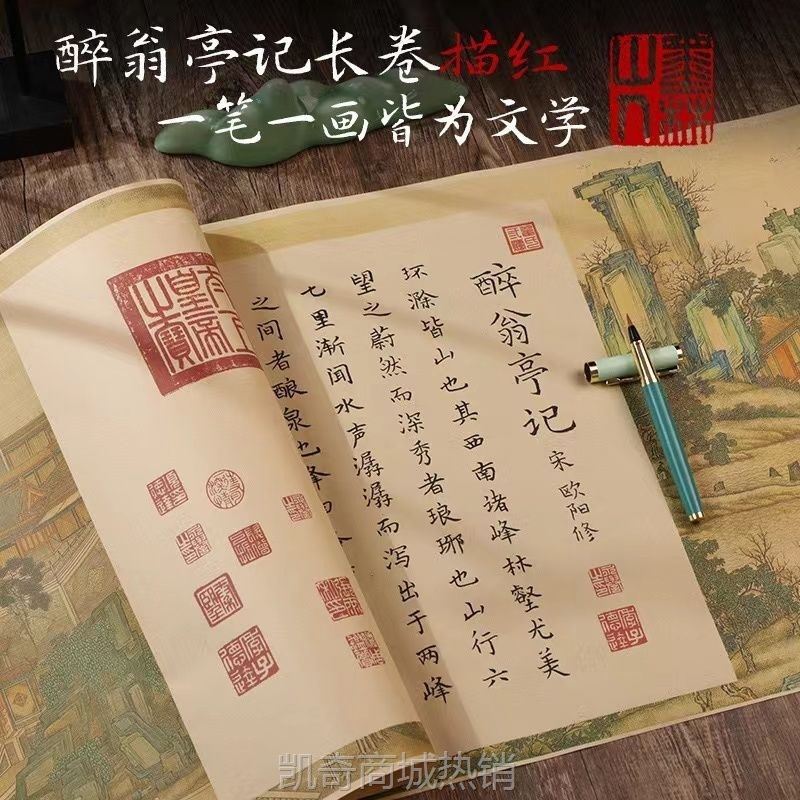 醉翁亭记长卷描红
一笔一画皆为文学
醉翁亭记
宋 欧阳修
环滁皆山也其西南诸峰林壑尤美
望之蔚然而深秀者琅琊也山行六
七里渐闻水声潺潺而泻出于两峰
之间者酿泉也峰
皇帝
之寶
凯奇商城热销